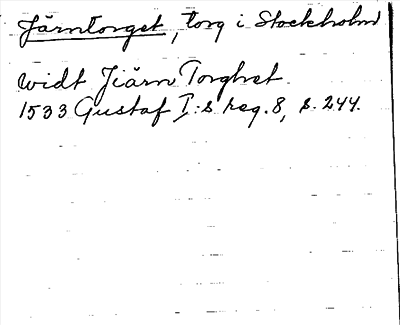 Järntorget, torg i Stockholm
widt Jiärn Torghet
1533 Gustaf I:s reg. 8, s. 244.